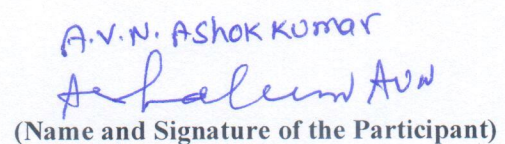 A.V.N. AShok KUmar
AVN
(Name and Signature of the Participant)